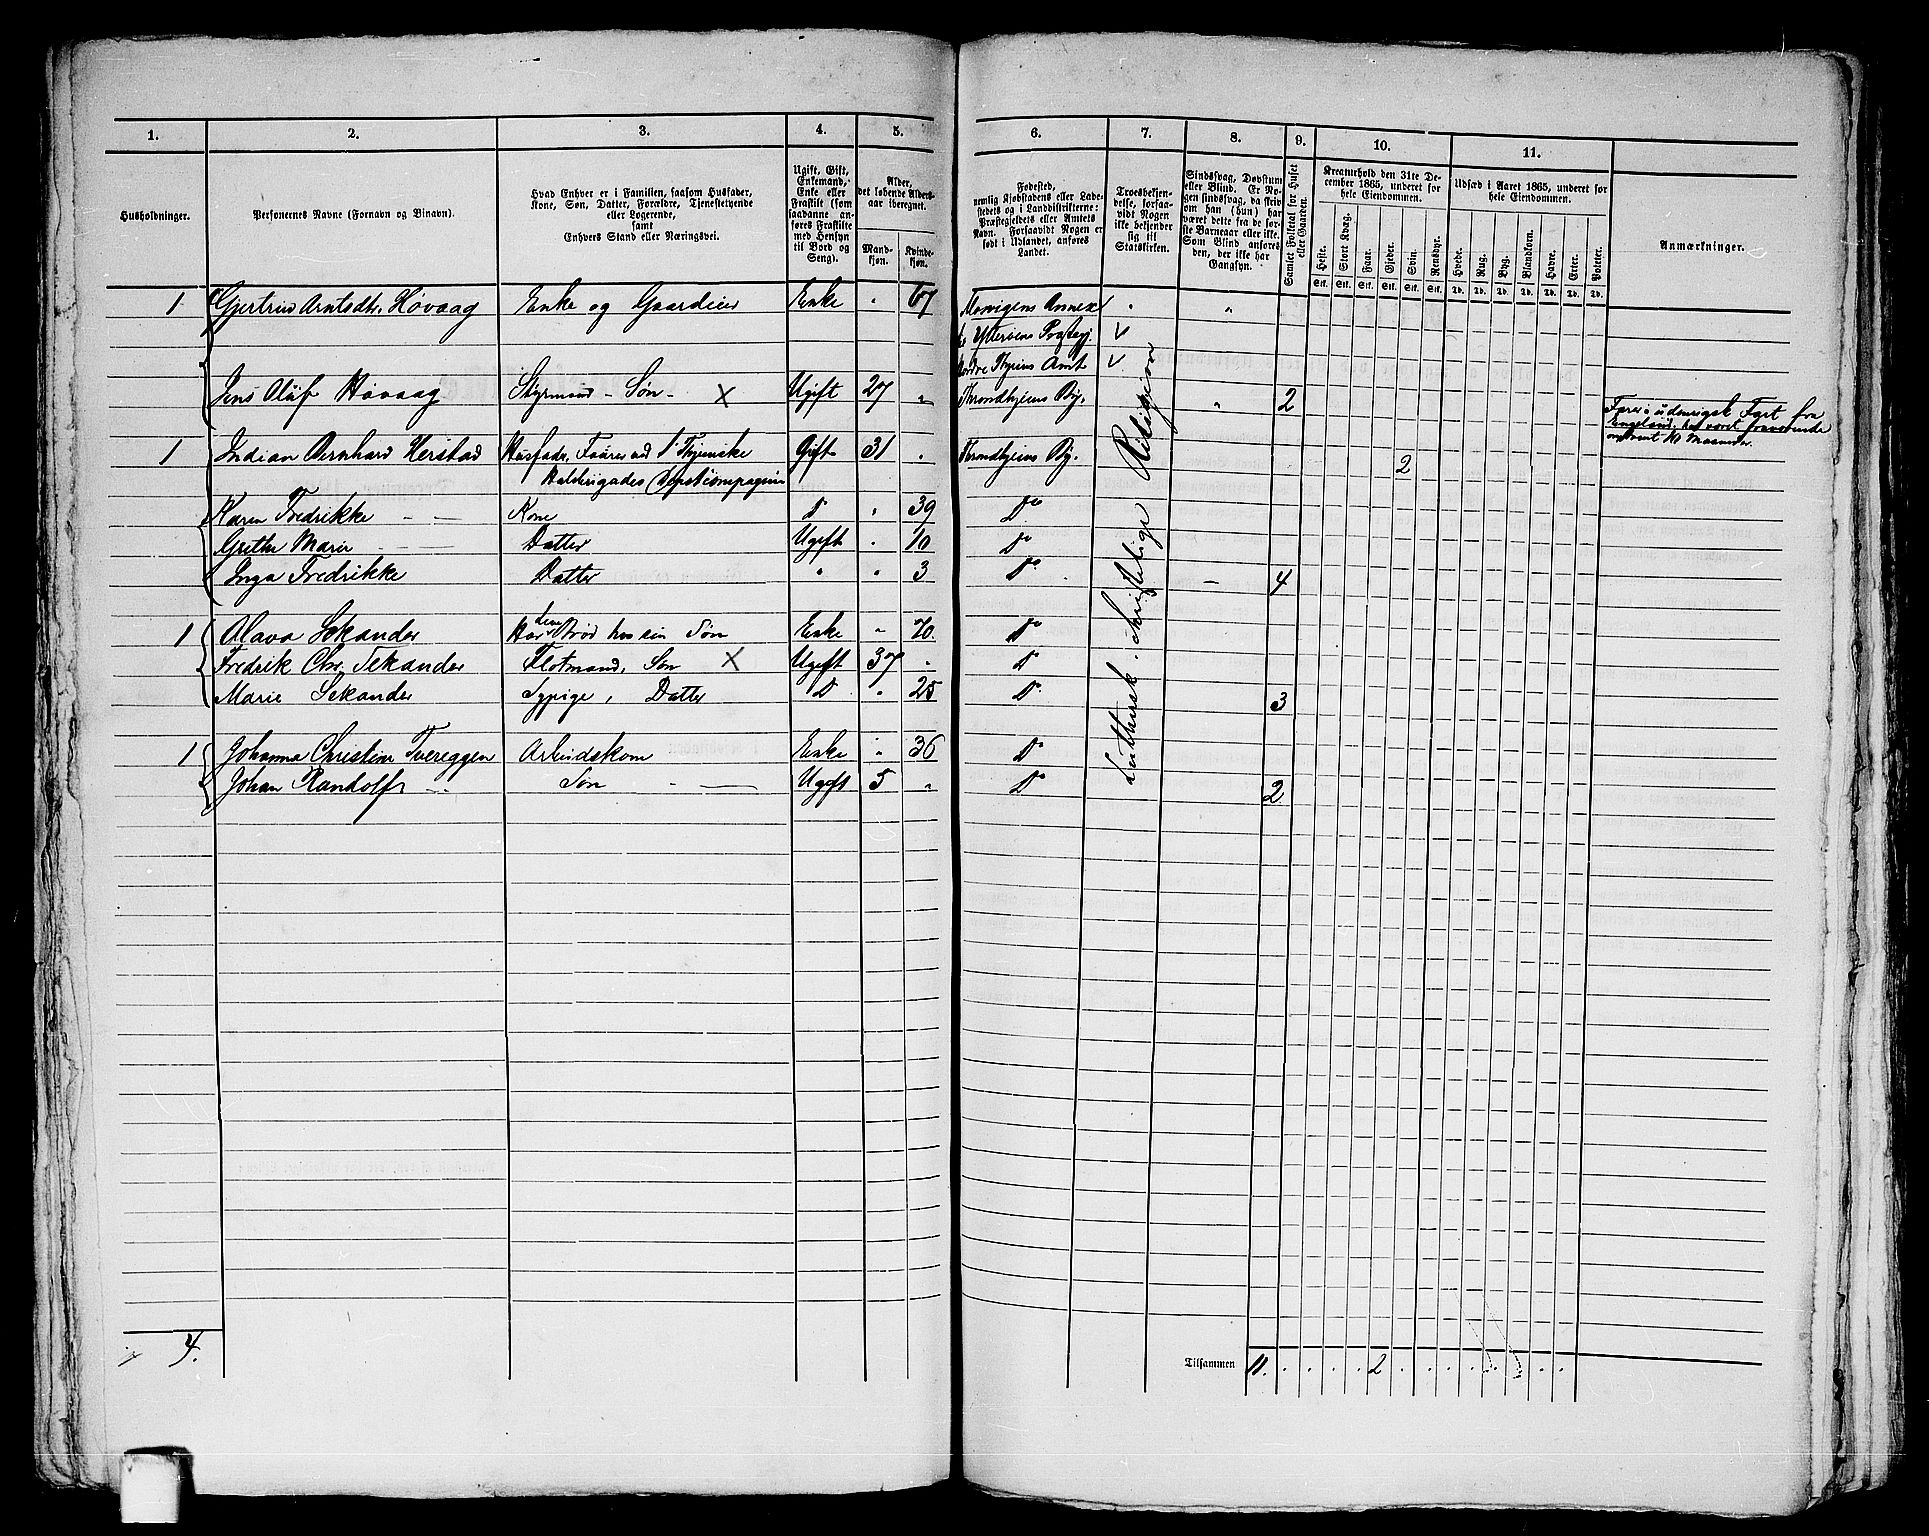 1. 2. 3. 4. 5. 6. 7. 8. 9. 10. 11.
Husholdninger.
Personernes Navne (Fornavn og Binavn).
Hvad Enhver er i Familien, saasom Husfader,
Kone, Søn, Datter, Forældre, Tjenestetyende
eller Logerende,
samt
Enhvers Stand eller Næringsvei.
Ugift, Gift,
Enkemand,
Enke eller
Fraskilt (som
saadanne an-
føres Fraskilte
med Hensyn
til Bord og
Seng).
Alder,
det løbende Alders-
aar iberegnet.
Mand-
kjøn.
Kvinde-
kjøn.
Fødested,
nemlig Kjøbstadens eller Lade-
stedets og i Landdistrikterne:
Præstegjeldets eller Amtets
Navn. Forsaavidt Nogen er
født i Udlandet, anføres
Landet.
Troesbekjen-
delse, forsaa-
vidt Nogen
ikke bekjender
sig til
Statskirken.
Sindssvag, Døvstum
eller Blind. Er No-
gen sindssvag, da skriv
om han (hun) har
været dette fra de før-
ste Barneaar eller ikke.
Som Blind anføres
den, der ikke har
Gangsyn.
Samlet Folketal for Huset
eller Gaarden.
Kreaturhold den 31te De-
cember 1865, underet for
hele Eiendommen.
Heste. Stort Kvæg. Faar. Gjeder. Svin. Rensdyr.
Stk. Stk. Stk. Stk. Stk. Stk.
Udsæd i Aaret 1865, underet for
hele Eiendommen.
Hvede. Rug. Byg. Blandkorn. Havre. Erter. Poteter.
Td. Td. Td. Td. Td. Td. Td.
Anmærkninger.
1 Gjertrud Arntsdtr. Høvaag Enke og Gaardeier Enke " 67 Annex
Nordre Amt
Jens Oluf Høvaag Styrmand - Søn - X Ugift 27 " Throndhjems By. " 2
Farer i udenrigsk Fart fra
England, har været fraværende
1 Bernhard Herstad Gift 31 " Throndhjems By. 2
Karen Fredrikke - — Kone D " 39 Do
Grethe Marie - — Datter Ugift " 10 Do
Inga Fredrikke Datter " " 3 Do — 4
1 Olava Sekander Har sin Brød hos sin Søn Enke " 70 Do
Fredrik Chr. Sekander Flotmand, Søn X Ugift 37 " Do
Marie Sekander Sypige, Datter D " 25 Do 3
1 Johanna Christine Tvereggen Arbeidskone Enke " 36 Do
Johan Randolf - - Søn - — Ugift 5 " Do 2
Luthersk christelige Religion
4.
Tilsammen 11. . . . 2 . . . . . . .